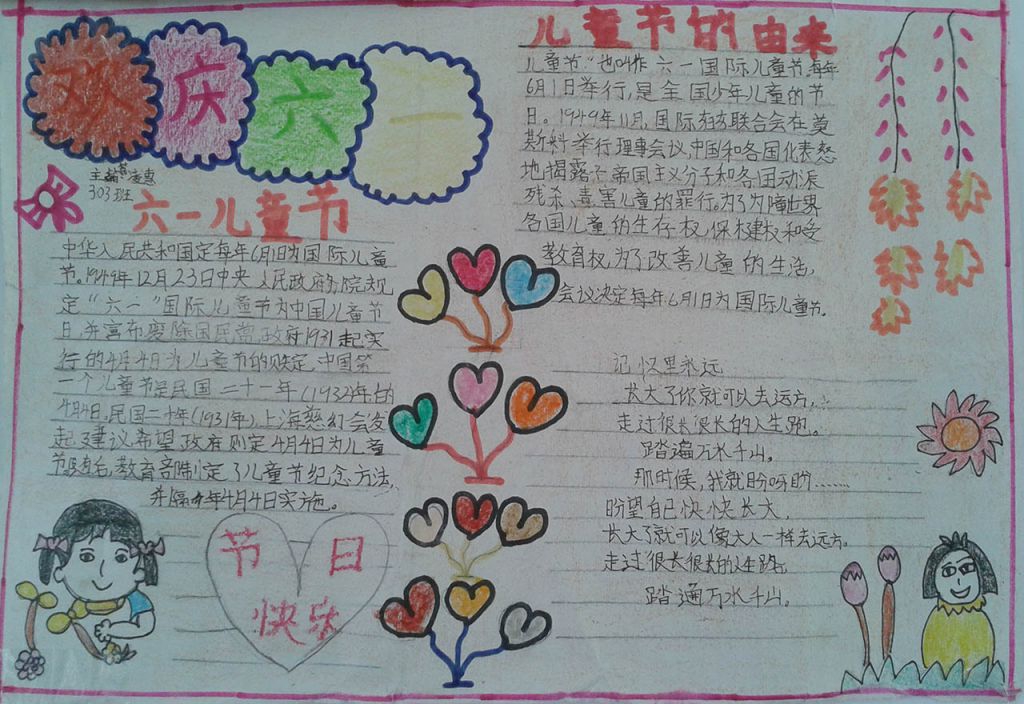 欢庆六一
主编
303班
六一儿童节
中华人民共和国定每年6月1日为国际儿童
节.1949年12月23日中央人民政府院规
定“六一”国际儿童节为中国儿童节
日,并宣布废除国民党政府1931起实
行的4月4日为儿童节的规定.中国第
一个儿童节是民国二十一年(1932)年的
4月4日.民国二十年(1931年),上海慈幼会发
起建议,希望政府则定4月4日为儿童
节,教育部制定了儿童节纪念方法,
并隔年4月4日实施。
节日
快乐
儿童节的由来
儿童节“也叫作六一国际儿童节,每年
6月1日举行,是全国少年儿童的节
日。1949年11月,国际妇女联合会在莫
斯科举行理事会议,中国和各国代表怒
地揭露了帝国主义分子和各国动派
残杀、毒害儿童的罪行。为了为障世界
各国儿童的生存权,保健权和受
教育权,为了改善儿童的生活,
会议决定每年6月1日为国际儿童节.
记忆里永远
长大了你就可以去远方,
走过很长很长的人生跑。
踏遍万水千山。
那时候,我就盼呀盼……
盼望自己快快长大,
长大了就可以像大人一样去远方.
走过很长很长的人生路
踏遍万水千山。